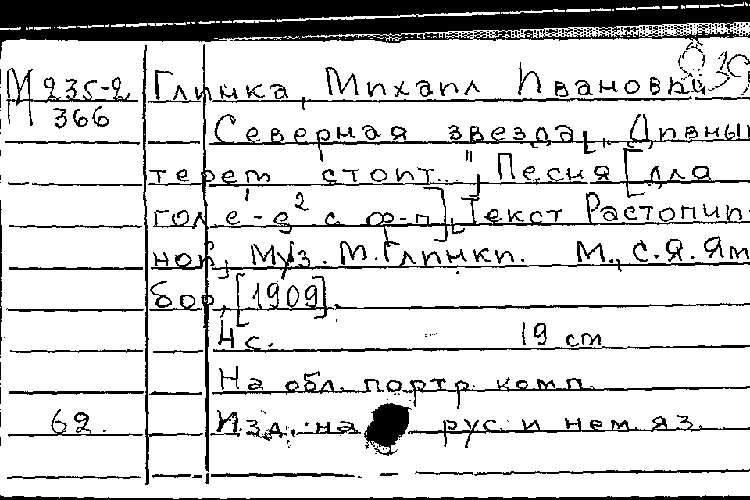 839
М 235-2 Глинка, Михаил Иванович
366 Северная звезда. ["Дивный
терем стоит..."] Песня [для
гол. e¹-g² с ф-п]. Текст Растопчи-
ной, Муз. М. Глинки. М., С.Я. Ям
бор, [1909].
4 с. 19 cm
На обл. портр. комп.
62. Изд. на рус. и нем. яз.